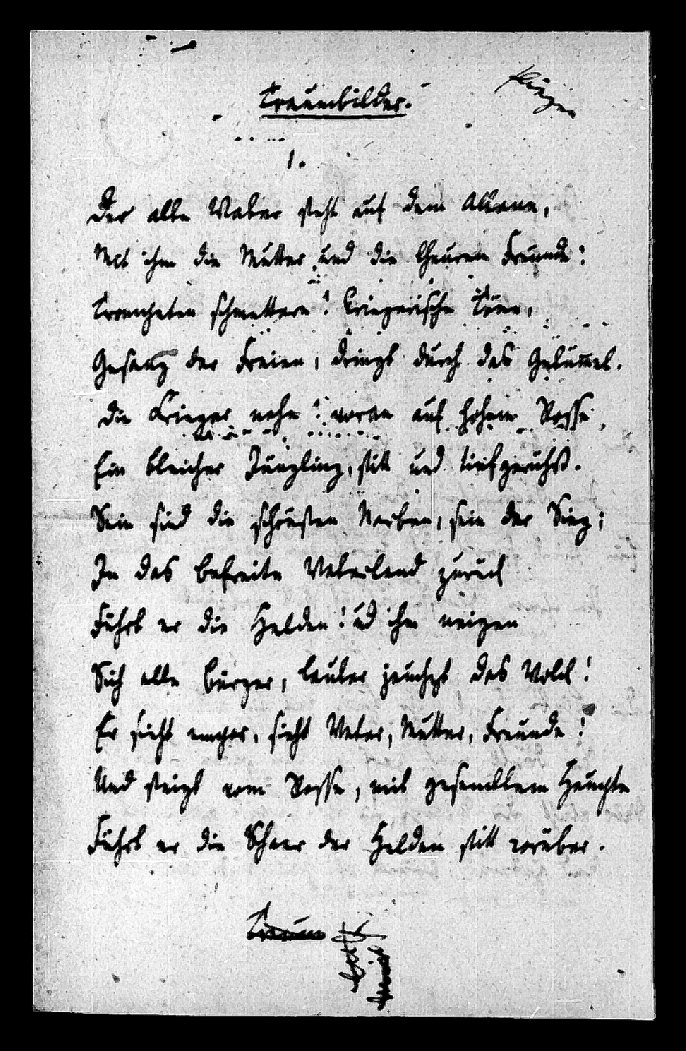 Traumbilder.
1.
Der alte Vater steht auf dem Altane,
Mit ihm die Mutter und die theuren Freunde:
Trompeten schmettern! kriegerische Töne,
Gesang der Freien, dringt durch das Getümmel.
Die Krieger nahn! voran auf hohem Rosse,
Ein bleicher Jüngling, still und tief gerührt.
Sein sind die schönsten Narben, sein der Sieg;
In das befreite Vaterland zurück
Führt er die Helden! und ihm neigen
Sich alte Bürger, lauter jauchzt das Volk!
Er sieht empor, sieht Vater, Mutter, Freunde!
Und steigt vom Rosse, mit gesenktem Haupte
Führt er die Schaar der Helden still vorüber.
Traum